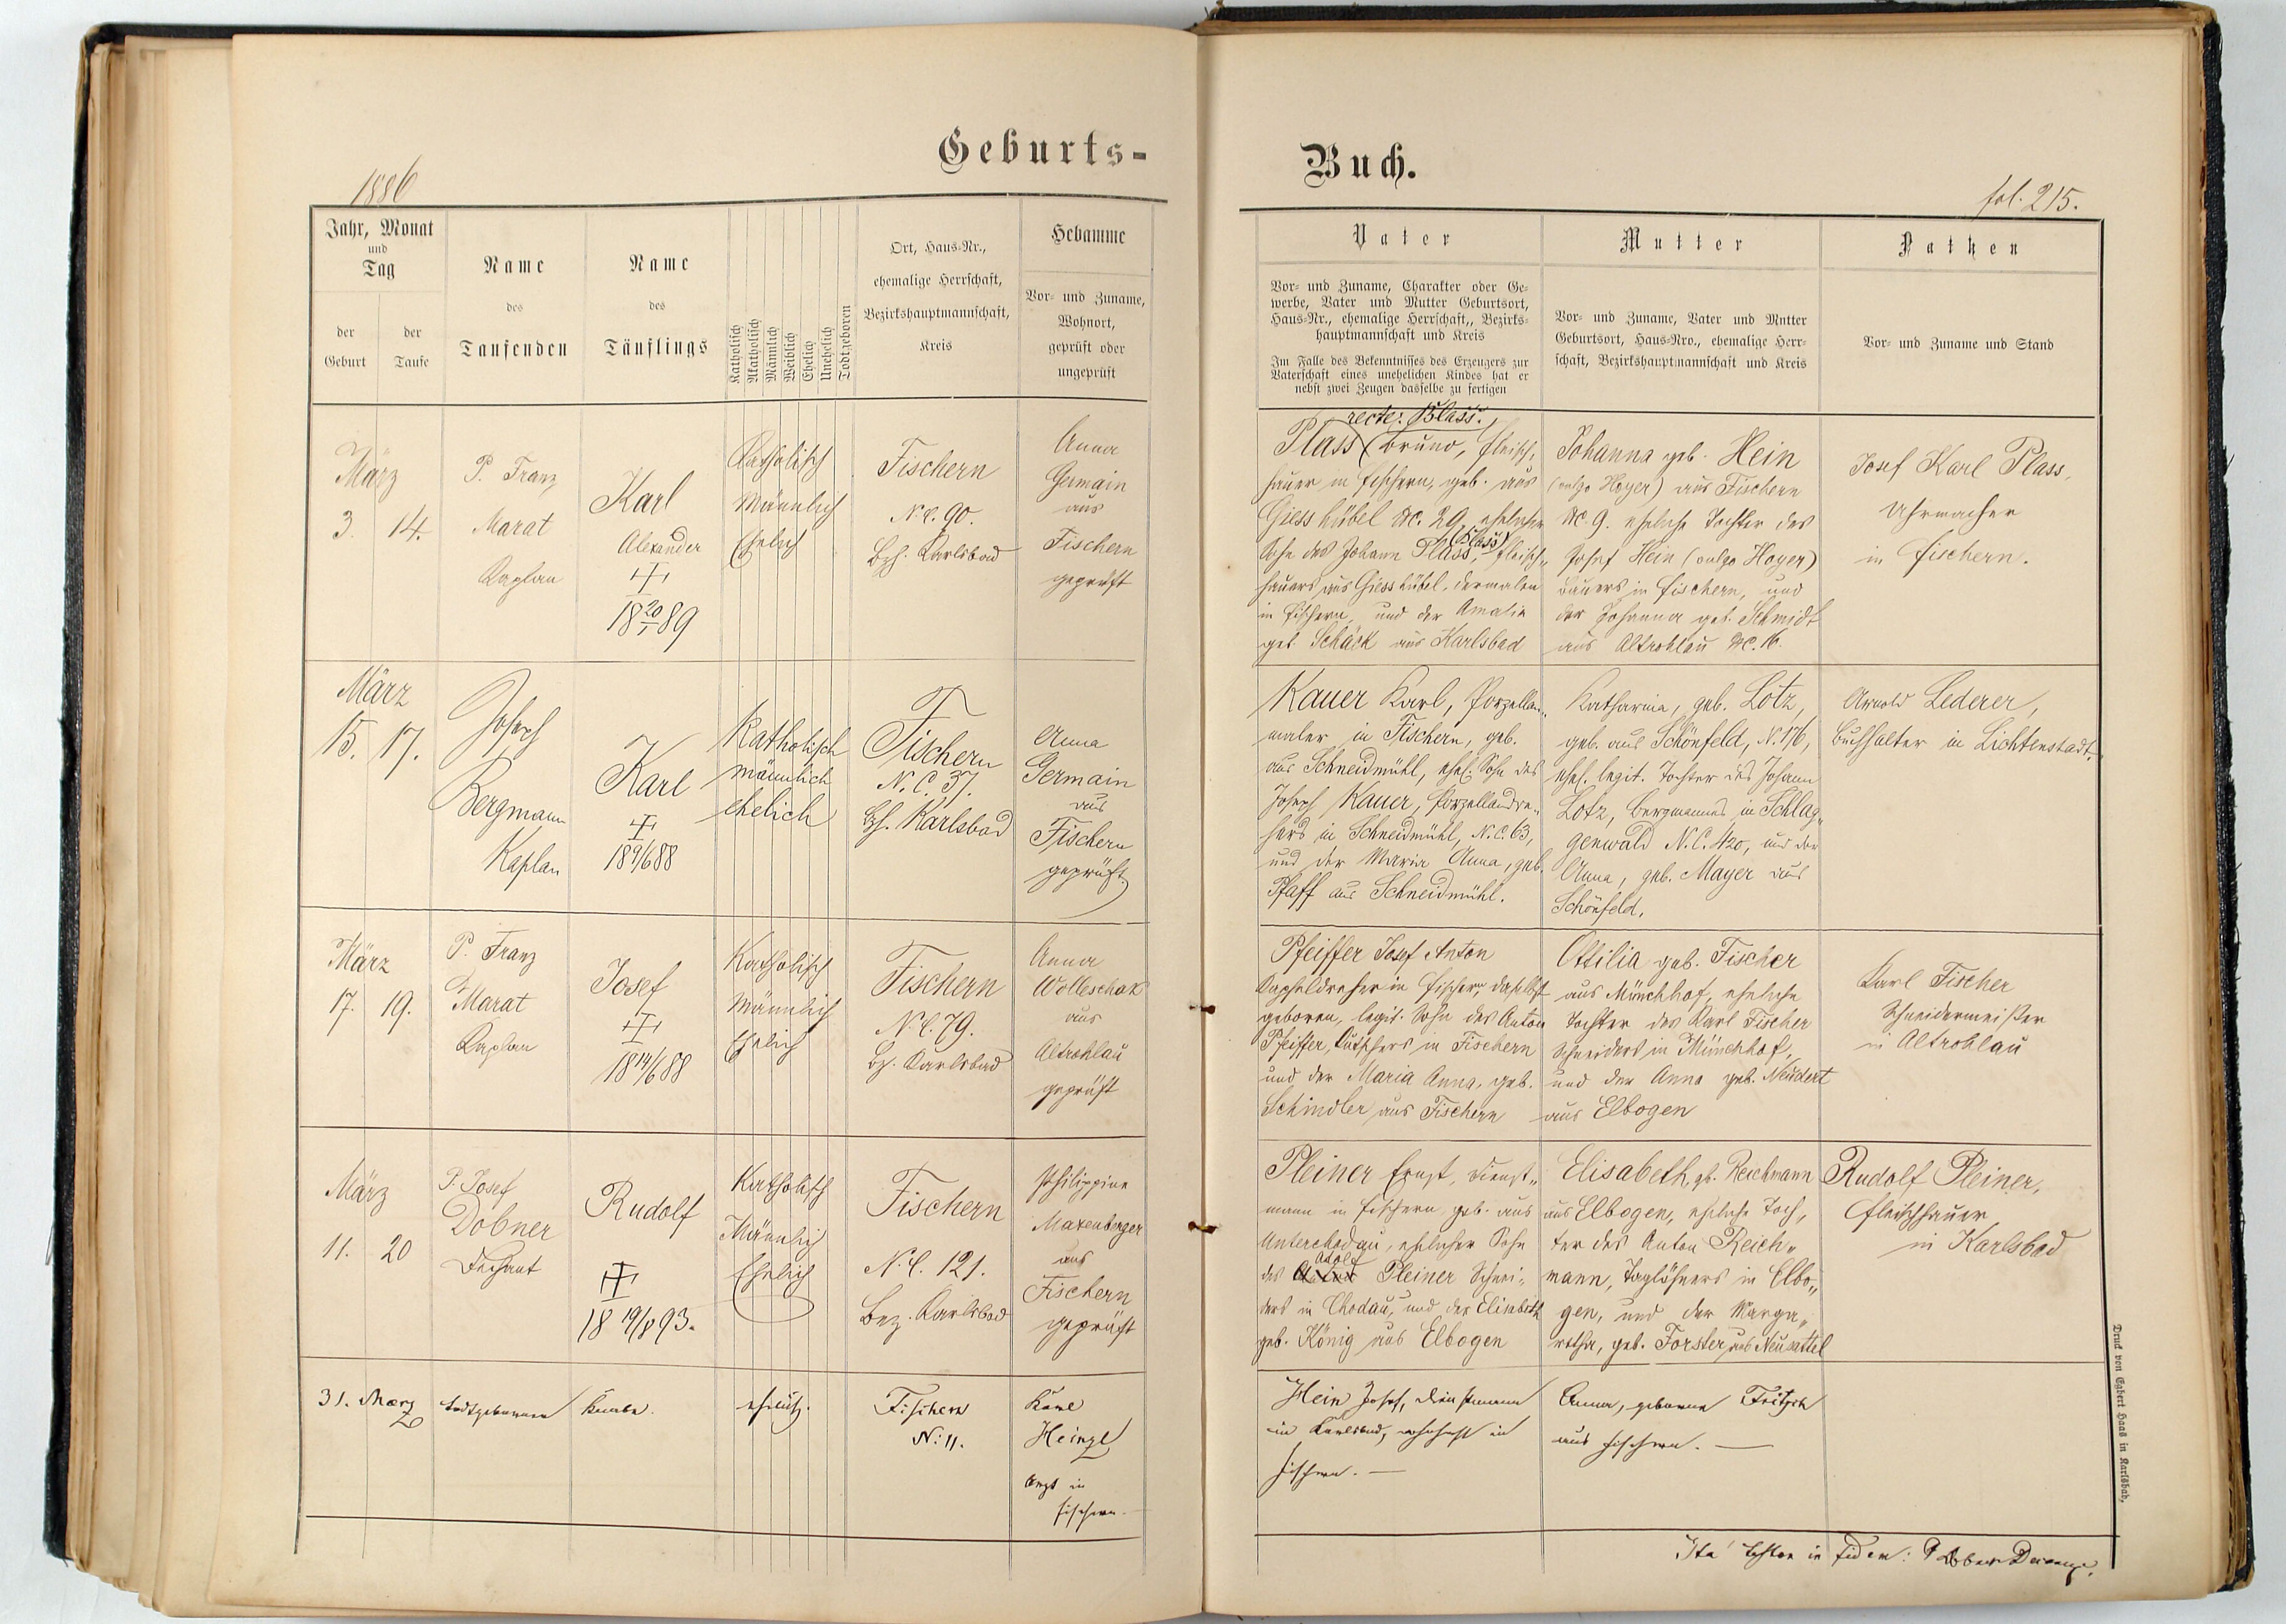 Geburts-
1886
Jahr, Monat
und
Tag
der
Geburt
der
Taufe
Name
des
Taufenden
Name
des
Täuflings
Katholisch
Akatholisch
Männlich
Weiblich
Ehelich
Unehelich
Todtgeboren
Ort, Haus-Nr.,
ehemalige Herrschaft,
Bezirkshauptmannschaft,
Kreis
Hebamme
Vor- und Zuname,
Wohnort,
geprüft oder
ungeprüft
März
3. 14.
P. Franz
Marat
Kaplan
Karl
Alexander
18 20/1 89
Katholisch
Männlich
Ehelich
Fischern
N.C. 90.
Bzh. Karlsbad
Anna
Germain
aus
Fischern
geprüft
März
15. 17.
Joseph
Bergmann
Kaplan
Karl
18 9/6 88
Katholisch
männlich
ehelich
Fischern
N.C. 37.
Bzh. Karlsbad
Anna
Germain
aus
Fischern
geprüft
März
17. 19.
P. Franz
Marat
Kaplan
Josef
18 14/6 88
Katholisch
Männlich
Ehelich
Fischern
N.C. 79.
Bz. Karlsbad
Anna
Wolleschak
aus
Altrohlau
geprüft
März
11. 20
P. Josef
Dobner
Dechant
Rudolf
18 19/8 93.
Katholisch
Männlich
Ehelich
Fischern
N.C. 121.
Bez. Karlsbad
Philippine
Maxenberger
aus
Fischern
geprüft
31. Maerz
todtgeborener
Knabe.
ehelich.
Fischern
N: 11.
Karl
Heinzl
Arzt in
Fischern
Buch.
fol. 215.
Vater
Vor- und Zuname, Charakter oder Ge-
werbe, Vater und Mutter Geburtsort,
Haus-Nr., ehemalige Herrschaft,, Bezirks-
hauptmannschaft und Kreis
Im Falle des Bekenntnisses des Erzeugers zur
Vaterschaft eines unehelichen Kindes hat er
nebst zwei Zeugen dasselbe zu fertigen
Mutter
Vor- und Zuname, Vater und Mutter
Geburtsort, Haus-Nro., ehemalige Herr-
schaft, Bezirkshauptmannschaft und Kreis
Pathen
Vor- und Zuname und Stand
recte: Blass.
Plass Bruno, Fleisch-
hauer in Fischern, geb. aus
Giesshübel NC. 29, ehelicher
(Blass)
Sohn des Johann Plass, Fleisch-
hauers aus Giesshübel, dermalen
in Fischern, und der Amalia
geb. Schäck aus Karlsbad
Johanna geb. Hein
(vulgo Hoyer) aus Fischern
NC. 9. eheliche Tochter des
Josef Hein (vulgo Hoyer)
Bauers in Fischern, und
der Johanna geb. Schmidt
aus Altrohlau NC. 16.
Josef Karl Plass,
Uhrmacher
in Fischern.
Kauer Karl, Porzellan-
maler in Fischern, geb.
aus Schneidmühl, ehel. Sohn des
Joseph Kauer, Porzellandre-
hers in Schneidmühl, N.C. 63,
und der Maria Anna, geb.
Pfaff aus Schneidmühl.
Katharina, geb. Lotz,
geb. aus Schönfeld, N. 176,
ehel. legit. Tochter des Johann
Lotz, Bergmannes in Schlag-
genwald N.C. 420, und der
Anna, geb. Mayer aus
Schönfeld.
Arnold Lederer,
Buchhalter in Lichtenstadt.
Pfeiffer Josef Anton
Kapseldreher in Fischern, daselbst
geboren, legit. Sohn des Anton
Pfeiffer, Kutschers in Fischern
und der Maria Anna, geb.
Schindler aus Fischern
Ottilia geb. Fischer
aus Münchhof, eheliche
Tochter des Karl Fischer
Schneiders in Münchhof,
und der Anna geb. Neudert
aus Elbogen
Karl Fischer
Schneidermeister
in Altrohlau
Pleiner Ernst, Dienst-
mann in Fischern, geb. aus
Unterchodau, ehelicher Sohn
Adolf
des Pleiner Schnei-
ders in Chodau, und der Elisabeth
geb. König aus Elbogen
Elisabeth, gb. Reichmann
aus Elbogen, eheliche Toch-
ter des Anton Reich-
mann, Taglöhners in Elbo-
gen, und der Marga-
retha, geb. Forster aus Neusattel
Rudolf Pleiner,
Fleischhauer
in Karlsbad
Hein Josef, Dienstmann
in Karlsbad, wohnhaft in
Fischern.
Anna, geborene Fritsch
aus Fischern.
Ita testor in fidem: P Dobner
Druck von Egbert Haas in Karlsbad.